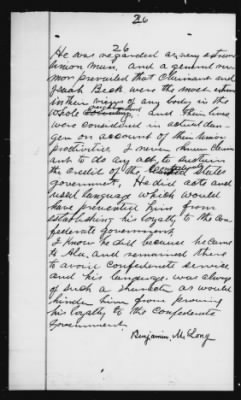 26
26
He was regarded as very extreem
union man, and a general ru-
mor prevailed that Claimant and
Josiah Beck were the most extreem
in their views of any body in the
whole neighborhood, and their lives
were considered in actual dan-
ger on account of their Union
proclivities. I never knew Claim-
ant to do any act, to sustain
the credit of the Confederate States
government. He did acts and
used language which would
have prevented him from
establishing his loyalty to the Con-
federate Government.
I know he did because he came
to Ala, and remained there
to avoid Confederate service
and his language was always
of such a character as would
hinder him from proving
his loyalty to the Confederate
Government.
Benjamin M. Long